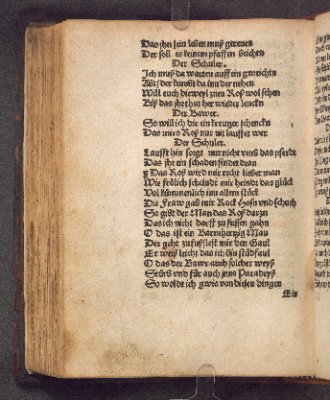 Das ihn sein leben muß gerewen
Der soll es keinem pfaffen beichtn
Der Schuler.
Ich muß da warten auff ein gweichtn
Mit der kunst da inn der nehen
Will euch dieweyl zum Roß wol sehen
Biß das jhr thut her wider lencken
Der Bawer.
So will ich dir ein kreutzer schencken
Das mirs Roß nur nit lauffet wer
Der Schuler.
Laufft hin sorgt nur nicht umb das pferdt
Das jhr ein schaden findet dran
Das Roß wird mir recht lieber man
Wie frölich scheindt mir heindt das glück
Vol kümmenlich inn allem stück
Die Fraw gab mir Rock Hosn und schuch
So gibt der Man das Roß darzu
Das ich nicht darff zu fussen gahn
O das ist ein Barmhertzig Man
Der geht zu fuß lest mir den Gaul
Er weiß leicht das ich bin stüdfaul
O das der Bawr auch solcher weyß
Stürb und für auch inns Paradeyß
So wolde ich gwis von diesen dingen
Ein